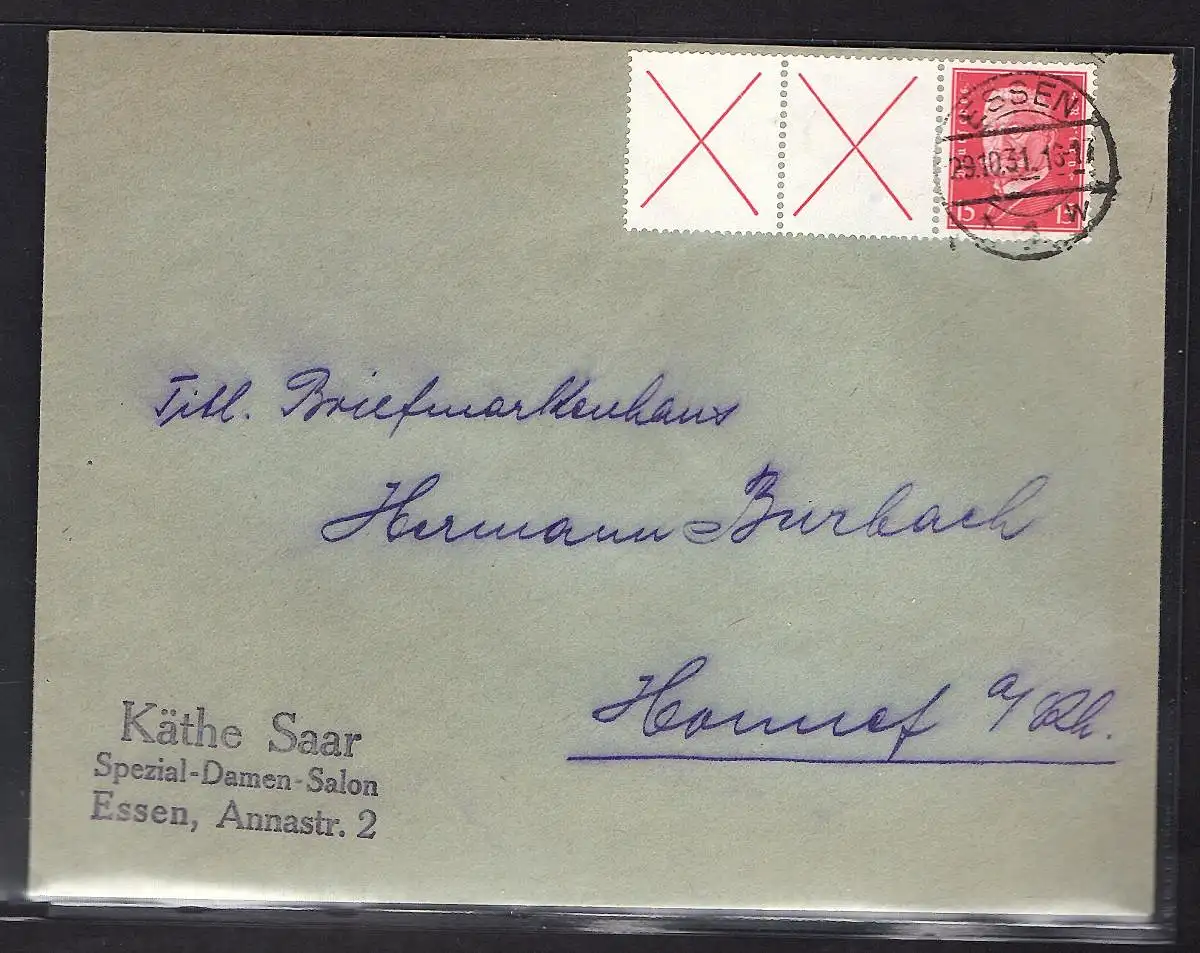 ESSEN
29.10.31. 16-17
15 15
Titl. Briefmarkenhaus
Hermann Burbach
Honnef a/Rh.
Käthe Saar
Spezial-Damen-Salon
Essen, Annastr. 2